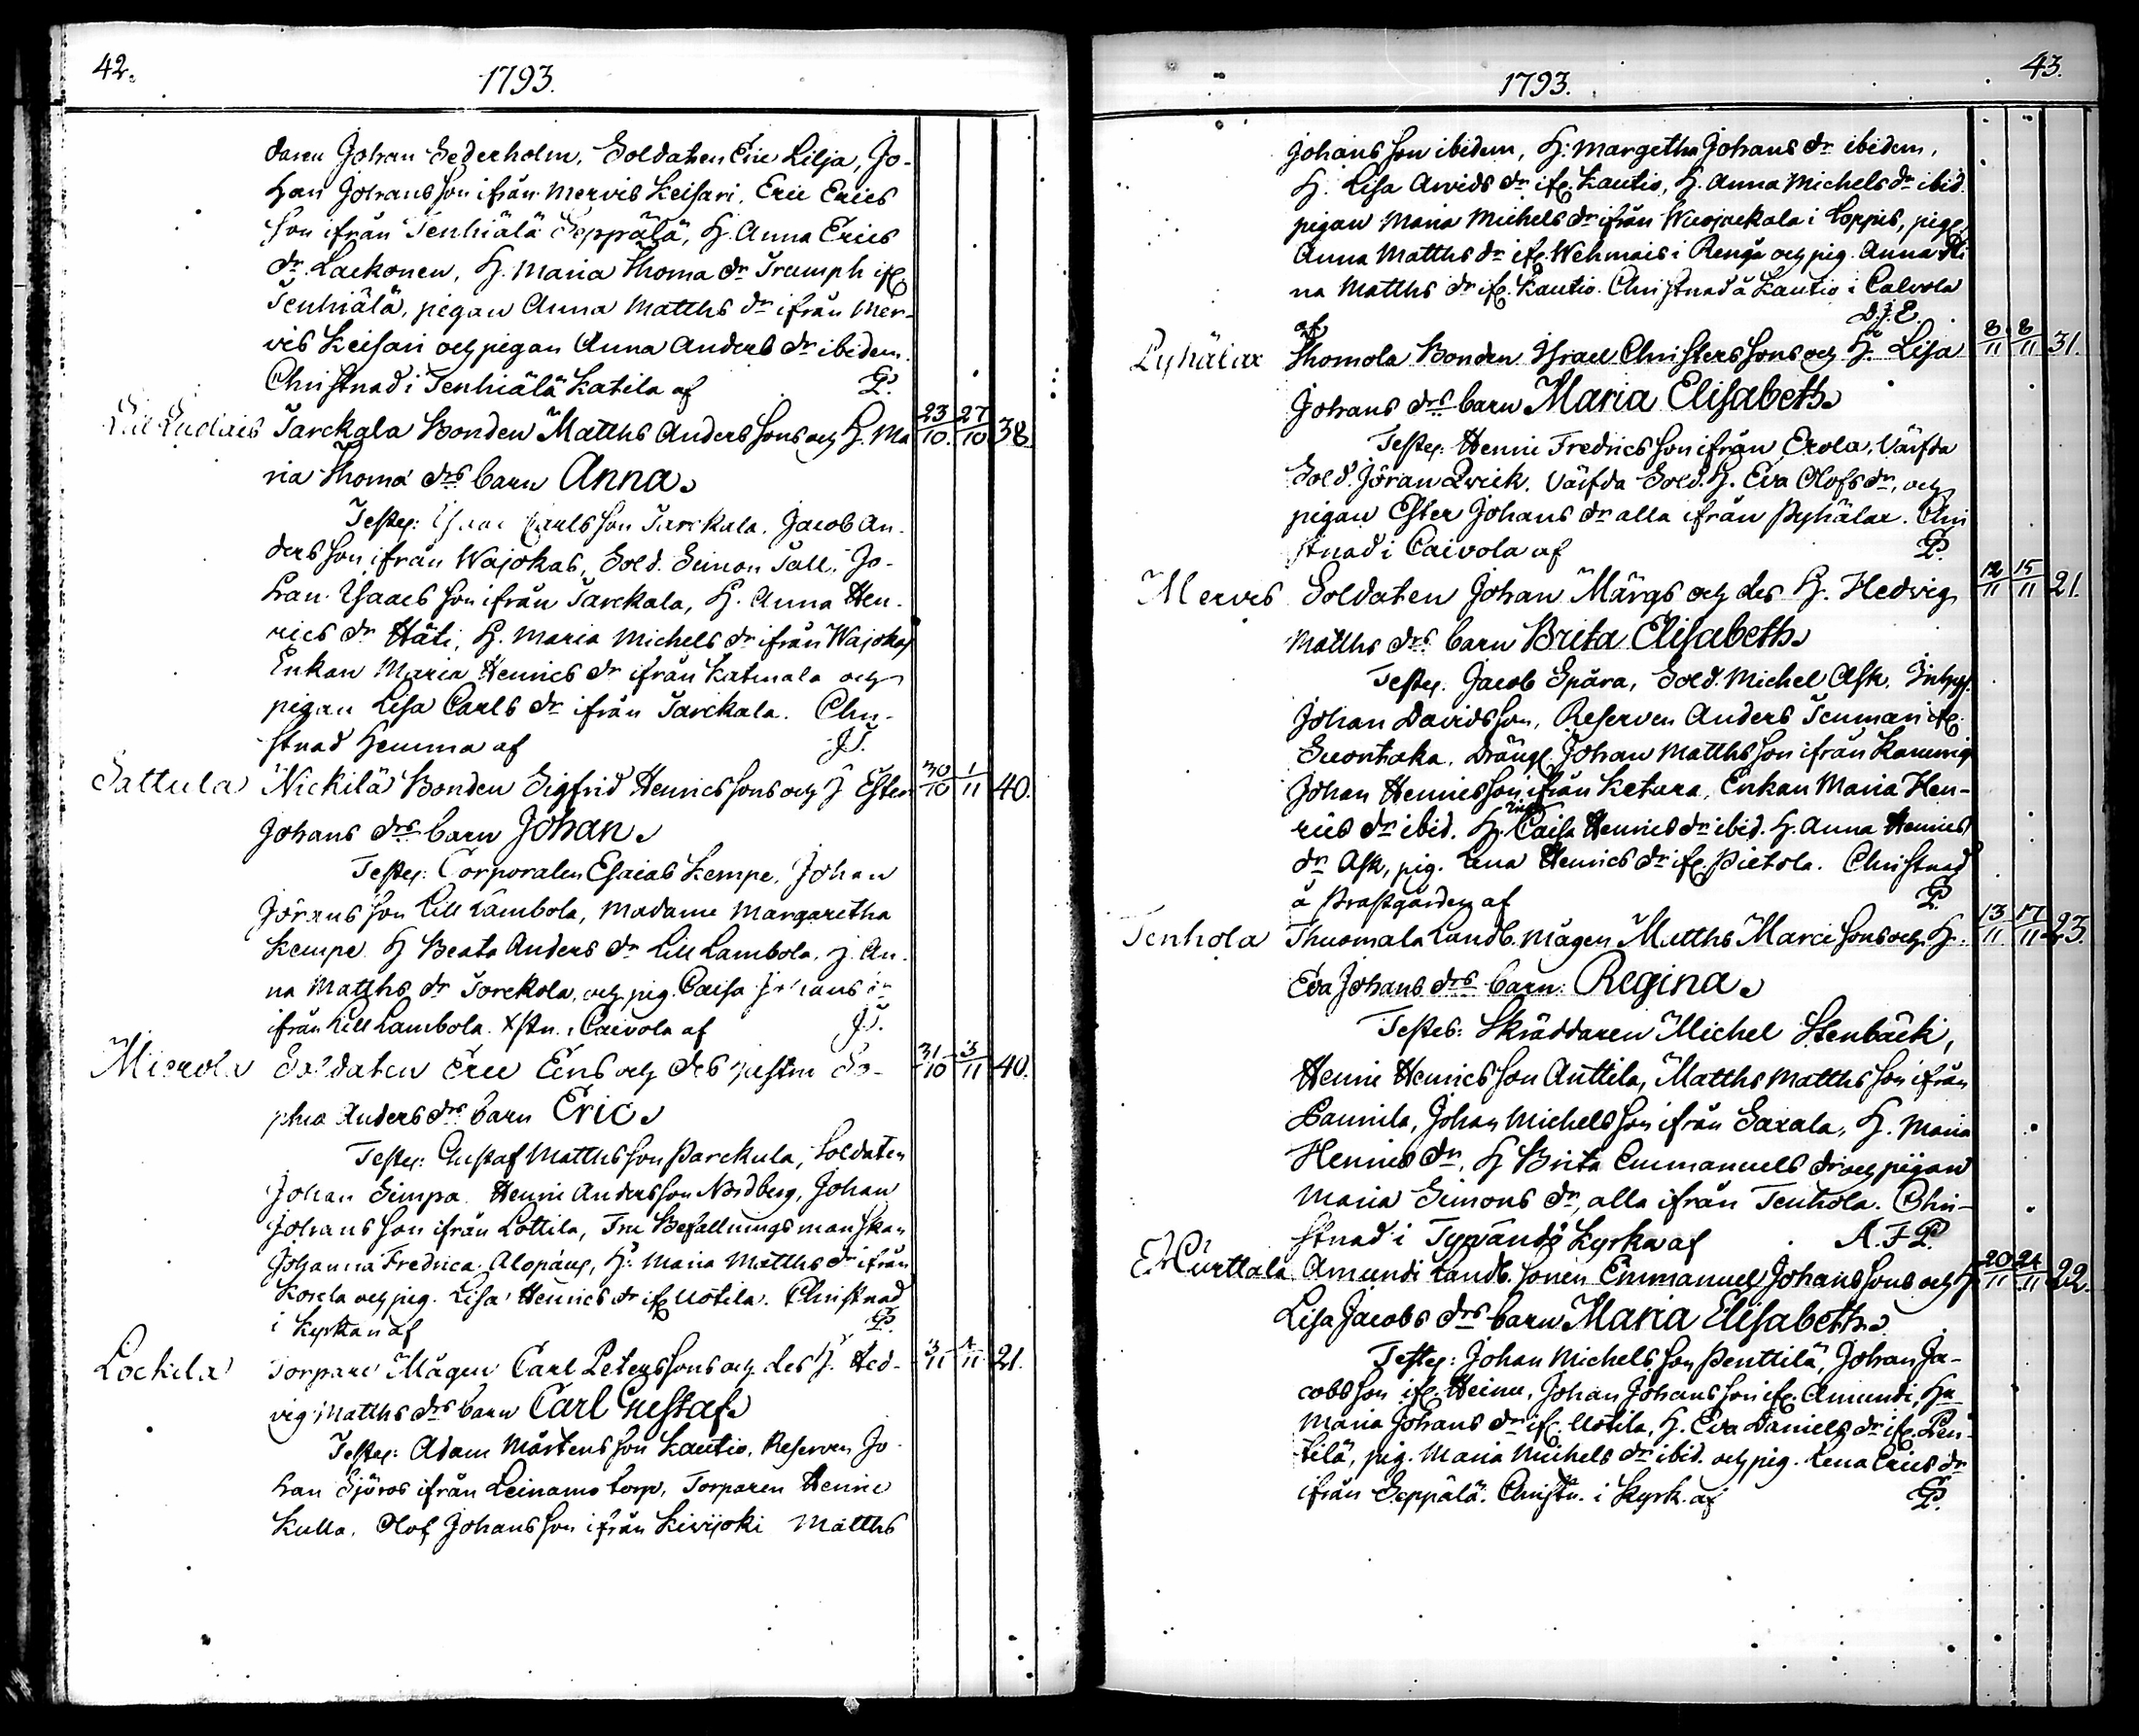 42.
1793.
daren Johan Sederholm, Soldaten Eric Lilja, Jo-
han Johansson ifrån Mervis Keisari, Eric Erics
son ifrån Tenhiälä Seppälä, H. Anna Erics
dr Lackonen, H. Maria Thoma dr Trumph ifr.
Tenhiälä, pigan Anna Matths dr ifrån Mer-
vis Keisari och pigan Anna Anders dr ibidem.
Christnad i Tenhiälä Katila af G.P.
Tarckala Bonden Matths Anderssons och H. Ma 23/10. 27/10 38.
ria Thoma drs barn Anna.
Testes: Isaac Carlsson Tarckala, Jacob An-
dersson ifrån Wajokas, Sold. Simon Tall, Jo-
han Isaacs son ifrån Tarckala, H. Anna Hen-
rics dr Häti, H. Maria Michels dr ifrån Wajokas
Enkan Maria Henrics dr ifrån Katinala och
pigan Lisa Carls dr ifrån Tarckala. Chri-
stnad hemma af J.T.
Sattula Nickilä Bonden Sigfrid Henricssons och H Ester 30/10 1/11 40.
Johans drs barn Johan.
Testes: Corporalen Esaias Kempe, Johan
Jöransson Lill Lambola, Madame Margaretha
Kempe, H Beata Anders dr Lill Lambola, H. An-
na Matths dr Torckola, och pig. Caisa Johans dr
ifrån Lill Lambola. Xstn. i Caivola af J.T.
Mierola Soldaten Eric Eens och des hustru So- 31/10 3/11 40.
phia Anders drs barn Eric.
Testes: Gustaf Matthsson Parckula, Soldaten
Johan Simpa, Henric Andersson Nordberg, Johan
Johansson ifrån Lottila, Fru Befallningsmanskan
Johanna Fredrica Alopæus, H. Maria Matths dr ifrån
Korela och pig. Lisa Henrics dr ifr. Uotila. Christnad
i Kyrkan af G.P.
Lockila Torpare Mågen Carl Peterssons och des H. Hed- 3/11 /11 21.
vig Matths drs barn Carl Gustaf.
Testes: Adam Mårtensson Kautio, Reserven Jo-
han Sjöros ifrån Leinamo torp, Torparen Henric
Kulla, Olof Johansson ifrån Kivijoki Matths
43.
1793.
Johansson ibidem, H. Margetha Johans dr ibidem,
H. Lisa Arvids dr ifr. Kautio, H. Anna Michels dr ibid.
pigan Maria Michels dr ifrån i Loppis, pig.
Anna Matths dr ifr. Wehmais i Rengå och pig. Anna Sti
na Matths dr ifr. Kautio. Christnad å Kautio i Calvola
af D.J.E.
Pyhälax Thomola Bonden Israel Christerssons och H. Lisa 3/11 8/11 31.
Johans drs barn Maria Elisabeth.
Testes: Henric Fredricsson ifrån Erola, Värfda
Sold. Jöran Qvick, Värfda Sold. H. Eva Olofs dr, och
pigan Ester Johans dr alla ifrån Pyhälax. Chri
stnad i Caivola af G.P.
Mervis Soldaten Johan Märgs och des H. Hedvig 12/11 15/11 21.
Matths drs barn Brita Elisabeth.
Testes. Jacob Spåra, Sold. Michel Ask,
Johan Davidsson, Reserven Anders Tenman ifr.
Suontaka, Drängl. Johan Matthsson ifrån
Johan Henricsson ifrån Ketara, Enkan Maria Hen-
rics dr ibid. H. Caisa Henrics dr ibid. H. Anna Henrics
dr Ask, pig. Lena Henrics dr ifr. Pietola. Christnad
å Prästgården af G.P.
Tenhola Thuomala Landb. mågen Matths Marcissons och H. 13/11 17/11 23.
Eva Johans drs barn Regina.
Testes: Skräddaren Michel Stenbäck,
Henric Henricsson Anttila, Matths Matthsson ifrån
Pannila, Johan Michelsson ifrån Saxala, H. Maria
Henrics dr, H Brita Emmanuels dr och pigan
Maria Simons dr, alla ifrån Tenhola. Chri-
stnad i Tyrvändö Kyrka af A.F.P.
Hurttala Amundi Landb. sonen Emmanuel Johanssons och H. 20/11 24/11 22.
Lisa Jacobs drs barn Maria Elisabeth.
Testes: Johan Michelsson Penttilä, Johan Ja-
cobsson ifr. Heinu, Johan Johansson ifr. Amundi, Hu
Maria Johans dr ifr. Uotila, H. Eva Daniels dr ifr. Pen-
tilä, pig. Maria Michels dr ibid. och pig. Lena Erics dr
ifrån Seppälä. Christn. i Kyrk. af G.P.